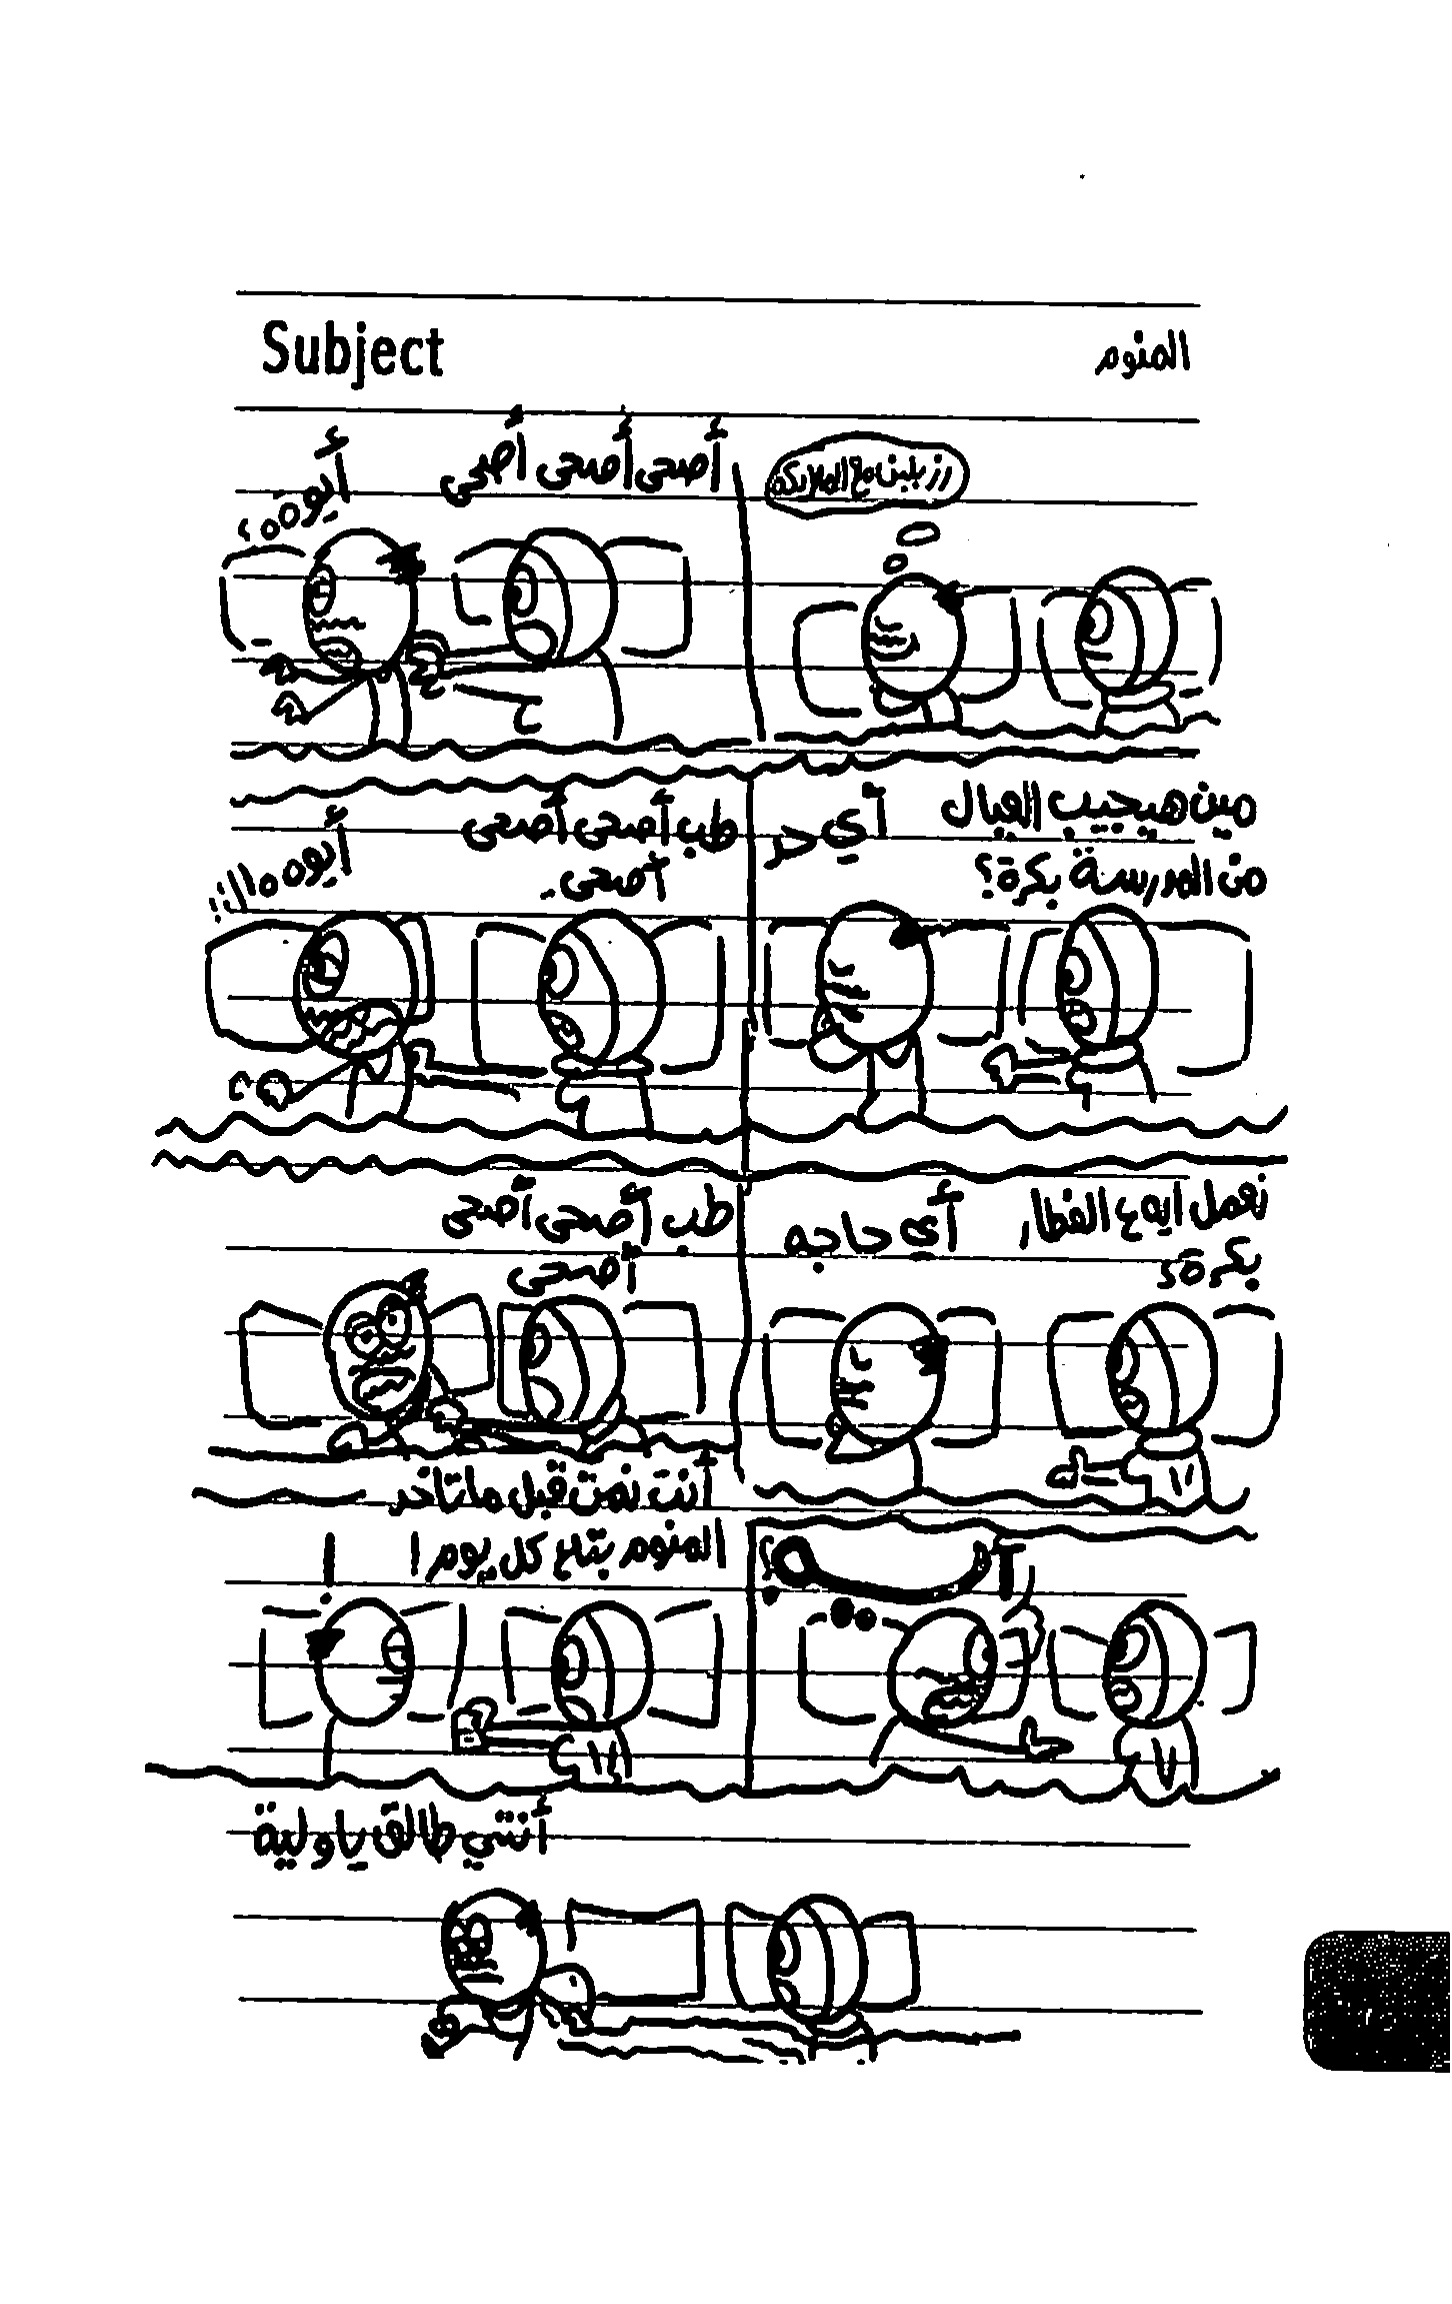 Subject
المنوم
رز بلبن مع الملايكة
أصحى أصحى أصحى
أيوه؟
مين هيجيب العيال
من المدرسة بكرة؟
أي حد
طب أصحى أصحى
أصحى
أيوه
نعمل ايه ع الفطار
بكرة؟
أي حاجه
طب أصحى أصحى
أصحى
أنت نمت قبل ماتاخد
المنوم بتاع كل يوم!
!
أنتي طالق يا ولية